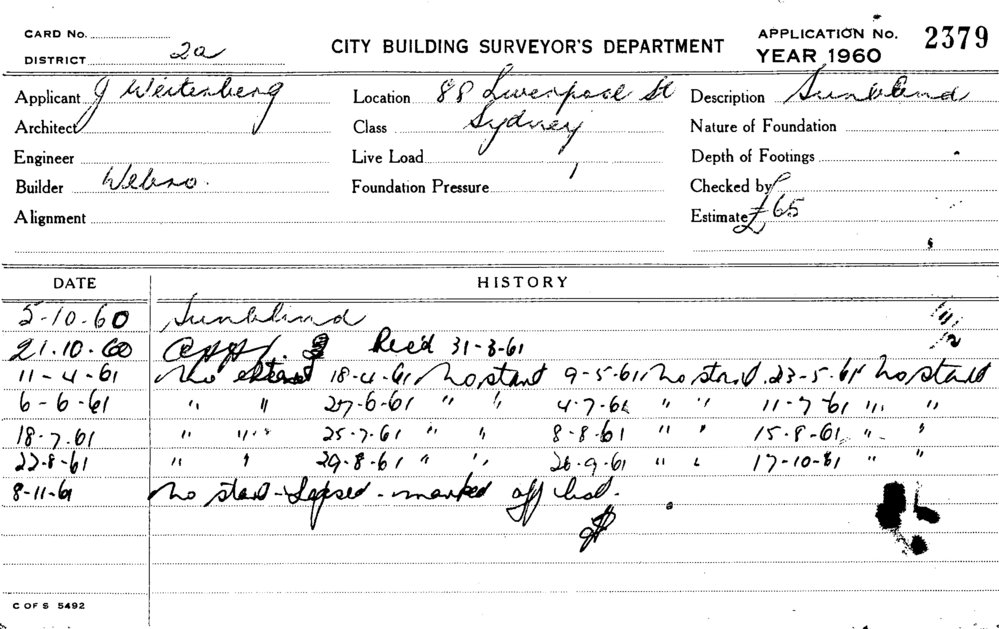 CARD No.
DISTRICT 2a
CITY BUILDING SURVEYOR'S DEPARTMENT
APPLICATION No. 2379
YEAR 1960
Applicant J Weitenberg Location 88 Liverpool St Description Sunblind
Architect Class Sydney Nature of Foundation
Engineer Live Load Depth of Footings
Builder Foundation Pressure Checked by
Alignment Estimate £65
DATE HISTORY
5-10-60 Sunblind
21.10.60 Appr. Rec'd 31-3-61
11-4-61 No start 18-4-61 No start 9-5-61 No start 23-5-61 No start
6-6-61 " " 27-6-61 " " 4-7-61 " " 11-7-61 " "
18-7-61 " " 25-7-61 " " 8-8-61 " " 15-8-61 " "
22-8-61 " " 29-8-61 " " 26-9-61 " " 17-10-61 " "
8-11-61 No start - Lapsed - marked off list.
C OF S 5492